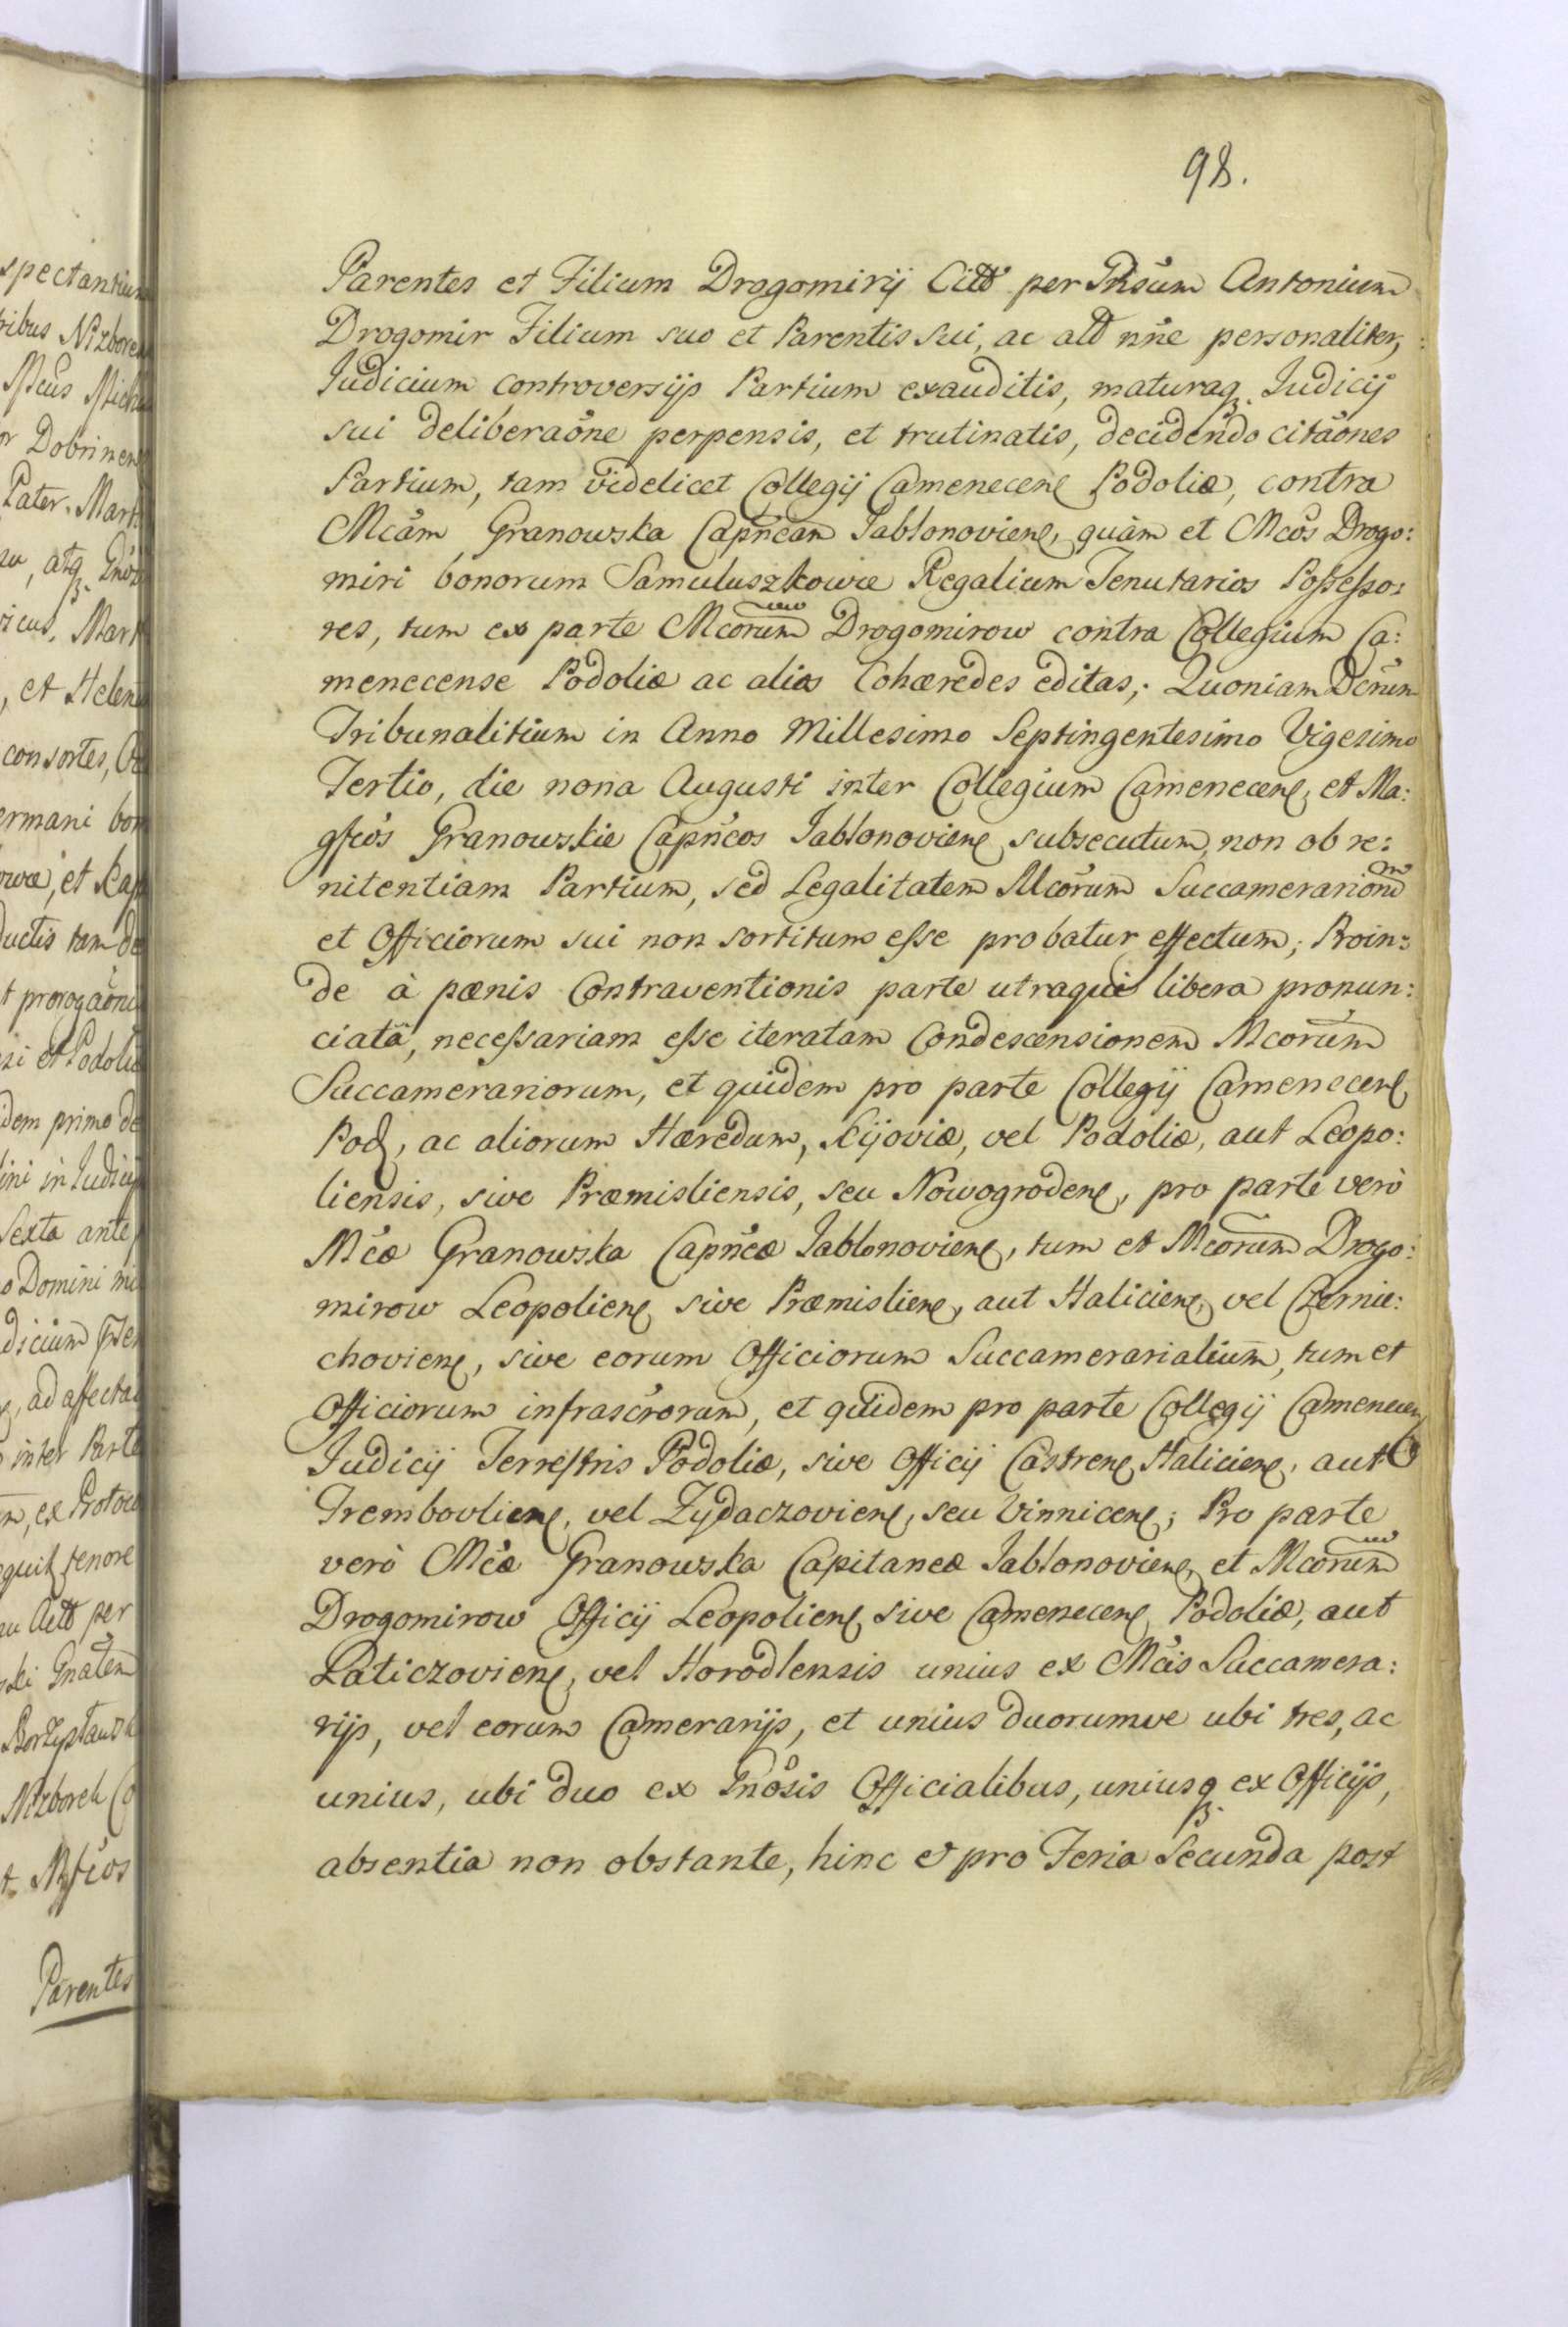 98.
Parentes et Filium Drogomirij Citt per Prsum Antonium
Drogomir Filium suo et Parentis sui, ac alt nñe personaliter,
Judicium controversijs Partium exauditis, maturaq Judicij
sui deliberaõne perpensis, et trutinatis, decidendo citaõnes
Partium, tam videlicet Collegij Camenecen Podoliæ, contra
Mcam Granowska Capñeam Jablonovien, quàm et Mcos Drogo:
miri bonorum Samuluszkowce Regalium Tenutarios Possesso:
res, tum ex parte Mcorum Drogomirow contra Collegium Ca:
menecense Podoliæ ac alios Cohæredes editas; Quoniam Dcrum
Tribunalitium in Anno Millesimo Septingentesimo Vigesimo
Tertio, die nona Augusti inter Collegium Camenecen, et Ma:
gfcos Granowskie Capñeos Jablonovien subsecutum, non ob re:
nitentiam Partium, sed Legalitatem Mcorum Succamerariorum
et Officiorum sui non sortitum esse probatur effectum; Proin:
de à pœnis Contraventionis parte utraque libera pronun:
ciatâ, necessariam esse iteratam Condescensionem Mcorum
Succamerariorum, et quidem pro parte Collegij Camenecen
Pod, ac aliorum Hæredum, Kijoviæ, vel Podoliæ, aut Leopo:
liensis, sive Præmisliensis, seu Nowogroden, pro parte verò
Mcæ Granowska Capñeæ Jablonovien, tum et Mcorum Drogo:
mirow Leopolien sive Præmislien, aut Halicien, vel Czernie:
chovien, sive eorum Officiorum Succamerarialium, tum et
Officiorum infrascrorum, et quidem pro parte Collegij Camenecen
Judicij Terrestris Podoliæ, sive Officij Castren Halicien, aut
Trembovlien, vel Zydaczovien, seu Vinnicen; Pro parte
verò Mcæ Granowska Capitaneæ Jablonovien, et Mcorum
Drogomirow Officij Leopolien sive Camenecen Podoliæ, aut
Laticzovien, vel Horodlensis unius ex Mcis Succamera:
rijs, vel eorum Camerarijs, et unius duorumve ubi tres, ac
unius, ubi duo ex Gnosis Officialibus, uniusq ex Officijs,
absentia non obstante, hinc & pro Feria Secunda post